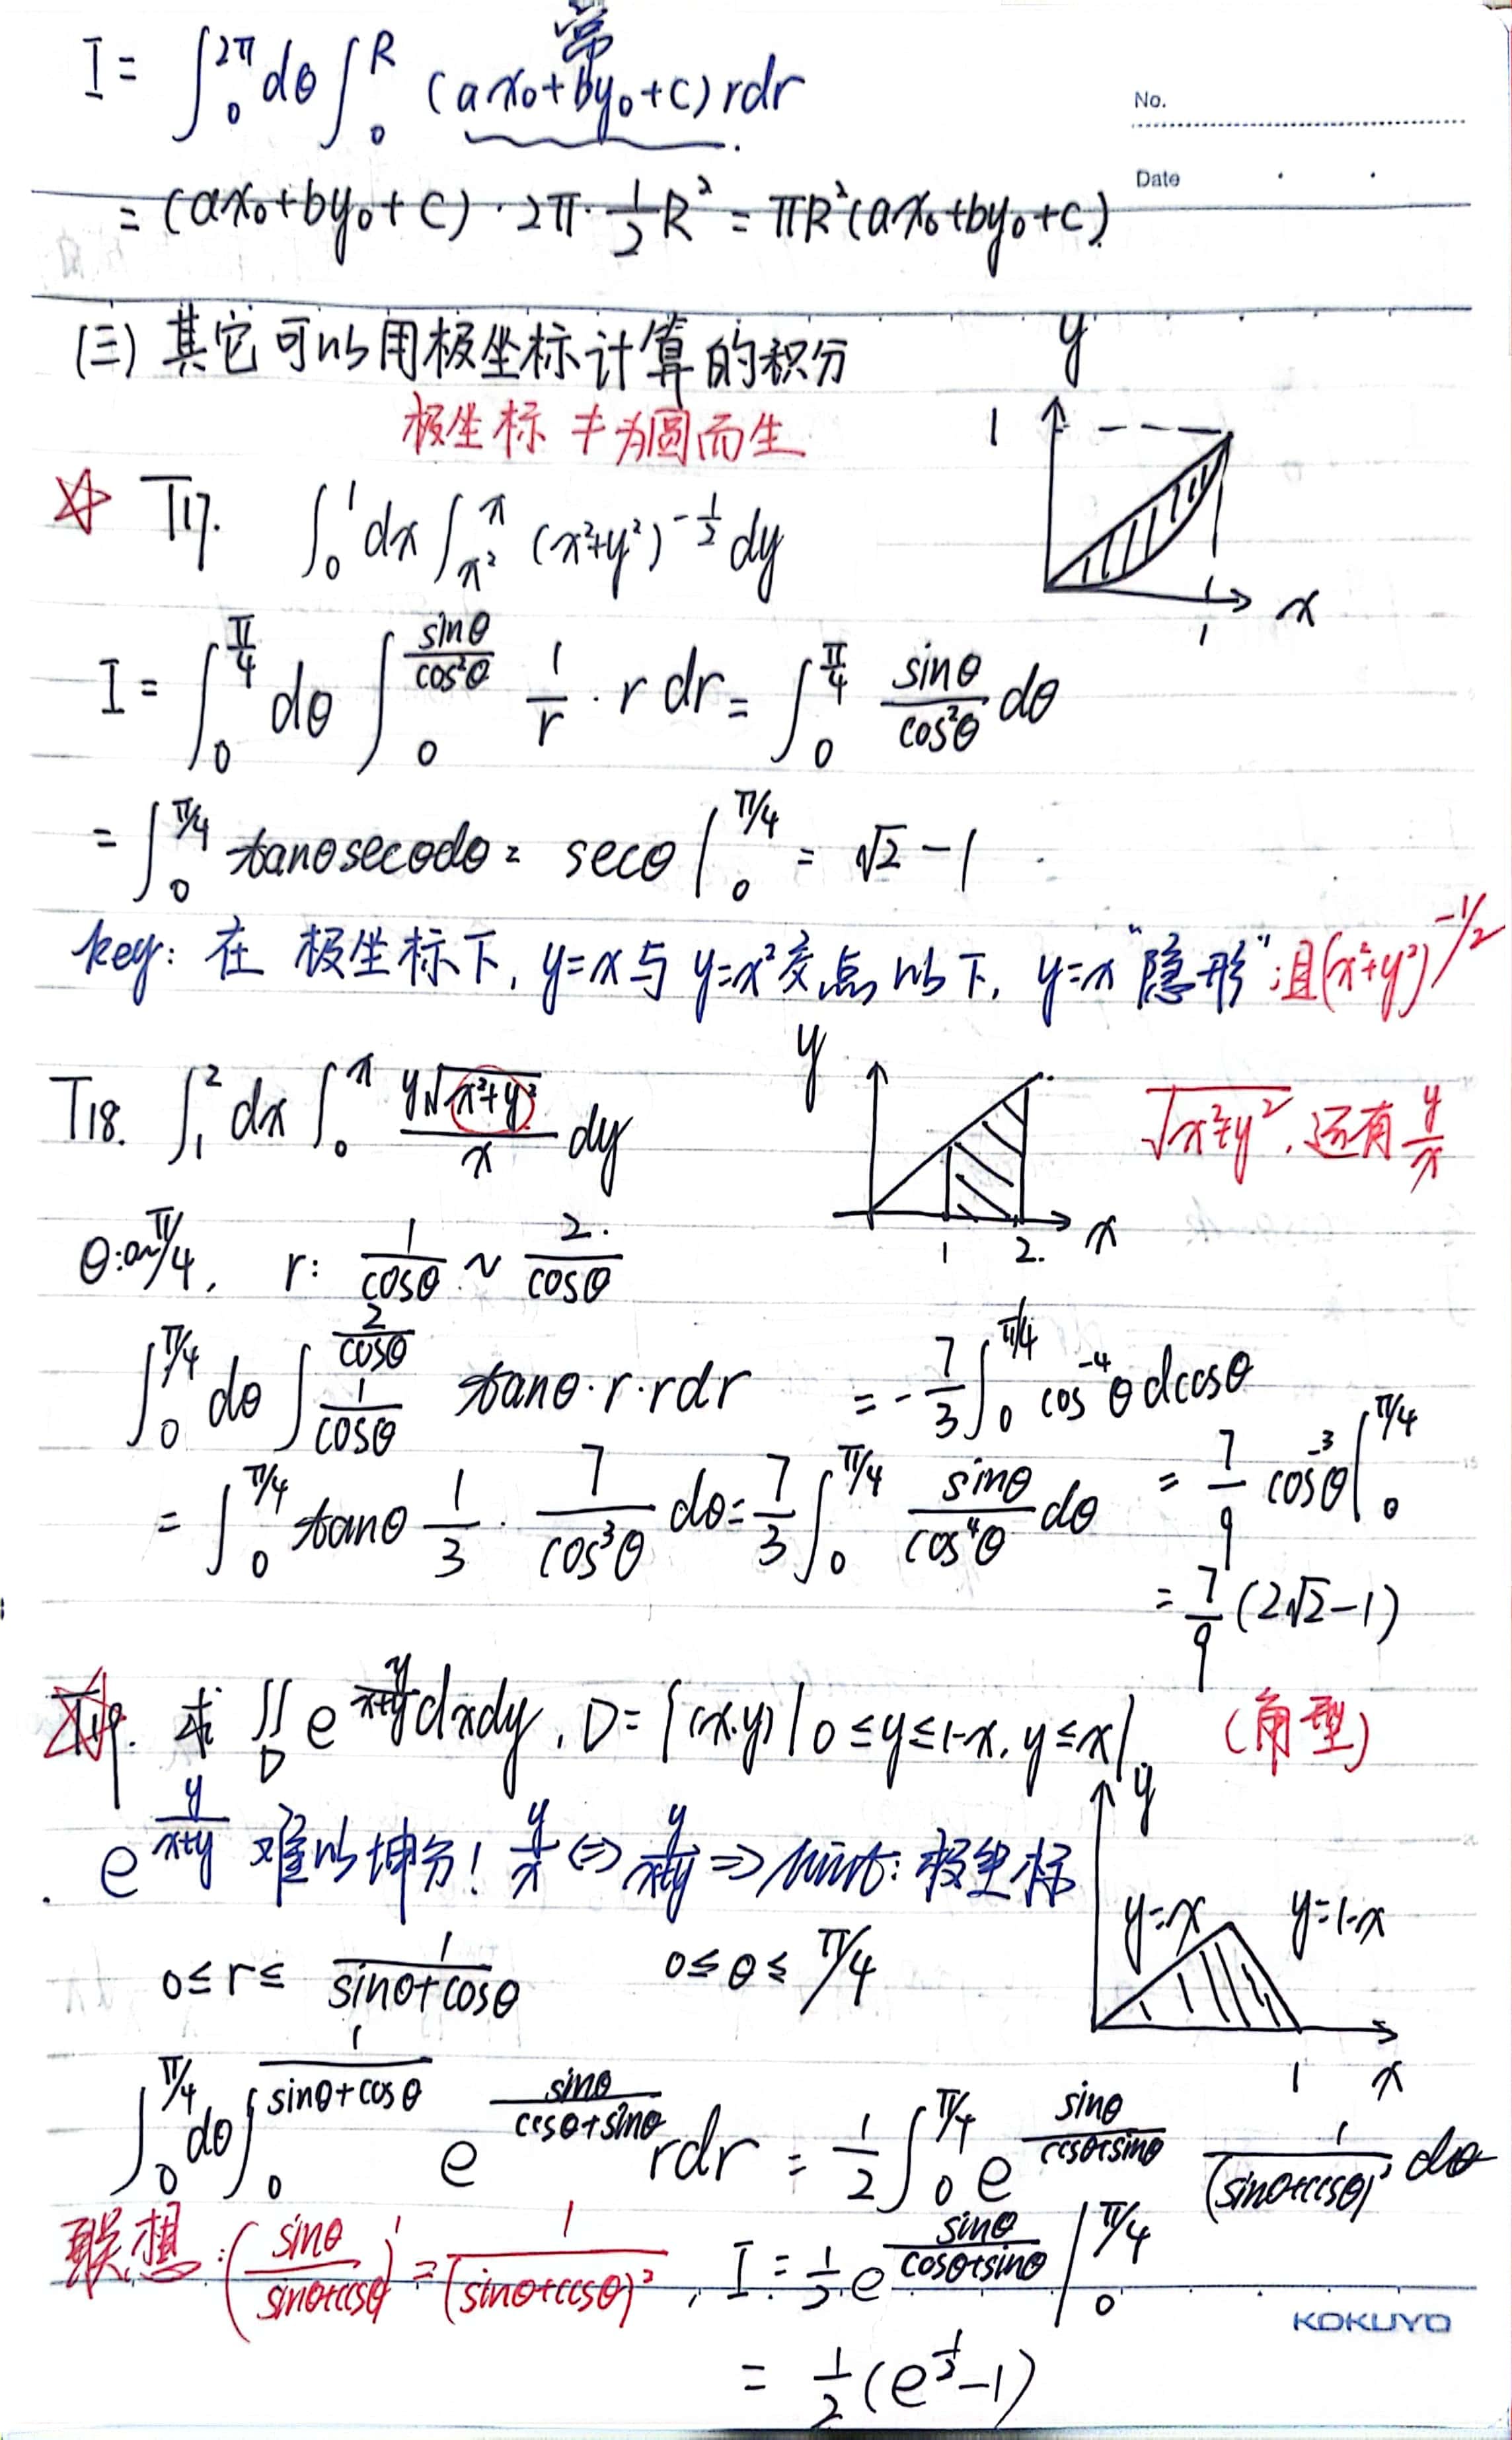 常
I = ∫₀^{2π} dθ ∫₀^R (ax₀+by₀+c) rdr
No.
Date
= (ax₀+by₀+c) · 2π · 1/2 R² = πR²(ax₀+by₀+c)
(三) 其它可以用极坐标计算的积分
极坐标 ≠ 为圆而生
☆ T17. ∫₀^1 dx ∫_{x²}^x (x²+y²)^{-1/2} dy
y 1 1 x
I = ∫₀^{π/4} dθ ∫₀^{sinθ/cos²θ} 1/r · r dr = ∫₀^{π/4} sinθ/cos²θ dθ
= ∫₀^{π/4} tanθsecθdθ = secθ |₀^{π/4} = √2 - 1
key: 在极坐标下, y=x与y=x²交点以下, y=x "隐形"; 且(x²+y²)^{-1/2}
T18. ∫₁² dx ∫₀^x y√(x²+y²)/x dy
y 1 2. x
√(x²+y²), 还有 y/x
θ:0~π/4, r: 1/cosθ ~ 2/cosθ
∫₀^{π/4} dθ ∫_{1/cosθ}^{2/cosθ} tanθ·r·rdr
= ∫₀^{π/4} tanθ 1/3 · 7/cos³θ dθ = 7/3 ∫₀^{π/4} sinθ/cos⁴θ dθ
= -7/3 ∫₀^{π/4} cos^{-4}θ dcosθ
= 7/9 cos^{-3}θ |₀^{π/4}
= 7/9 (2√2-1)
☆ T19. 求 ∬_D e^{y/(x+y)} dxdy, D={(x,y)|0≤y≤1-x, y≤x} (角型)
e^{y/(x+y)} 难以球分! y/x ⇔ y/(x+y) ⇒ hint: 极坐标
y y=x y=1-x 1 x
0≤r≤ 1/(sinθ+cosθ) 0≤θ≤π/4
∫₀^{π/4} dθ ∫₀^{1/(sinθ+cosθ)} e^{sinθ/(cosθ+sinθ)} rdr = 1/2 ∫₀^{π/4} e^{sinθ/(cosθ+sinθ)} 1/(sinθ+cosθ)² dθ
联想: (sinθ/(sinθ+cosθ))' = 1/(sinθ+cosθ)², I = 1/2 e^{sinθ/(cosθ+sinθ)} |₀^{π/4}
KOKUYO
= 1/2 (e^{1/2}-1)